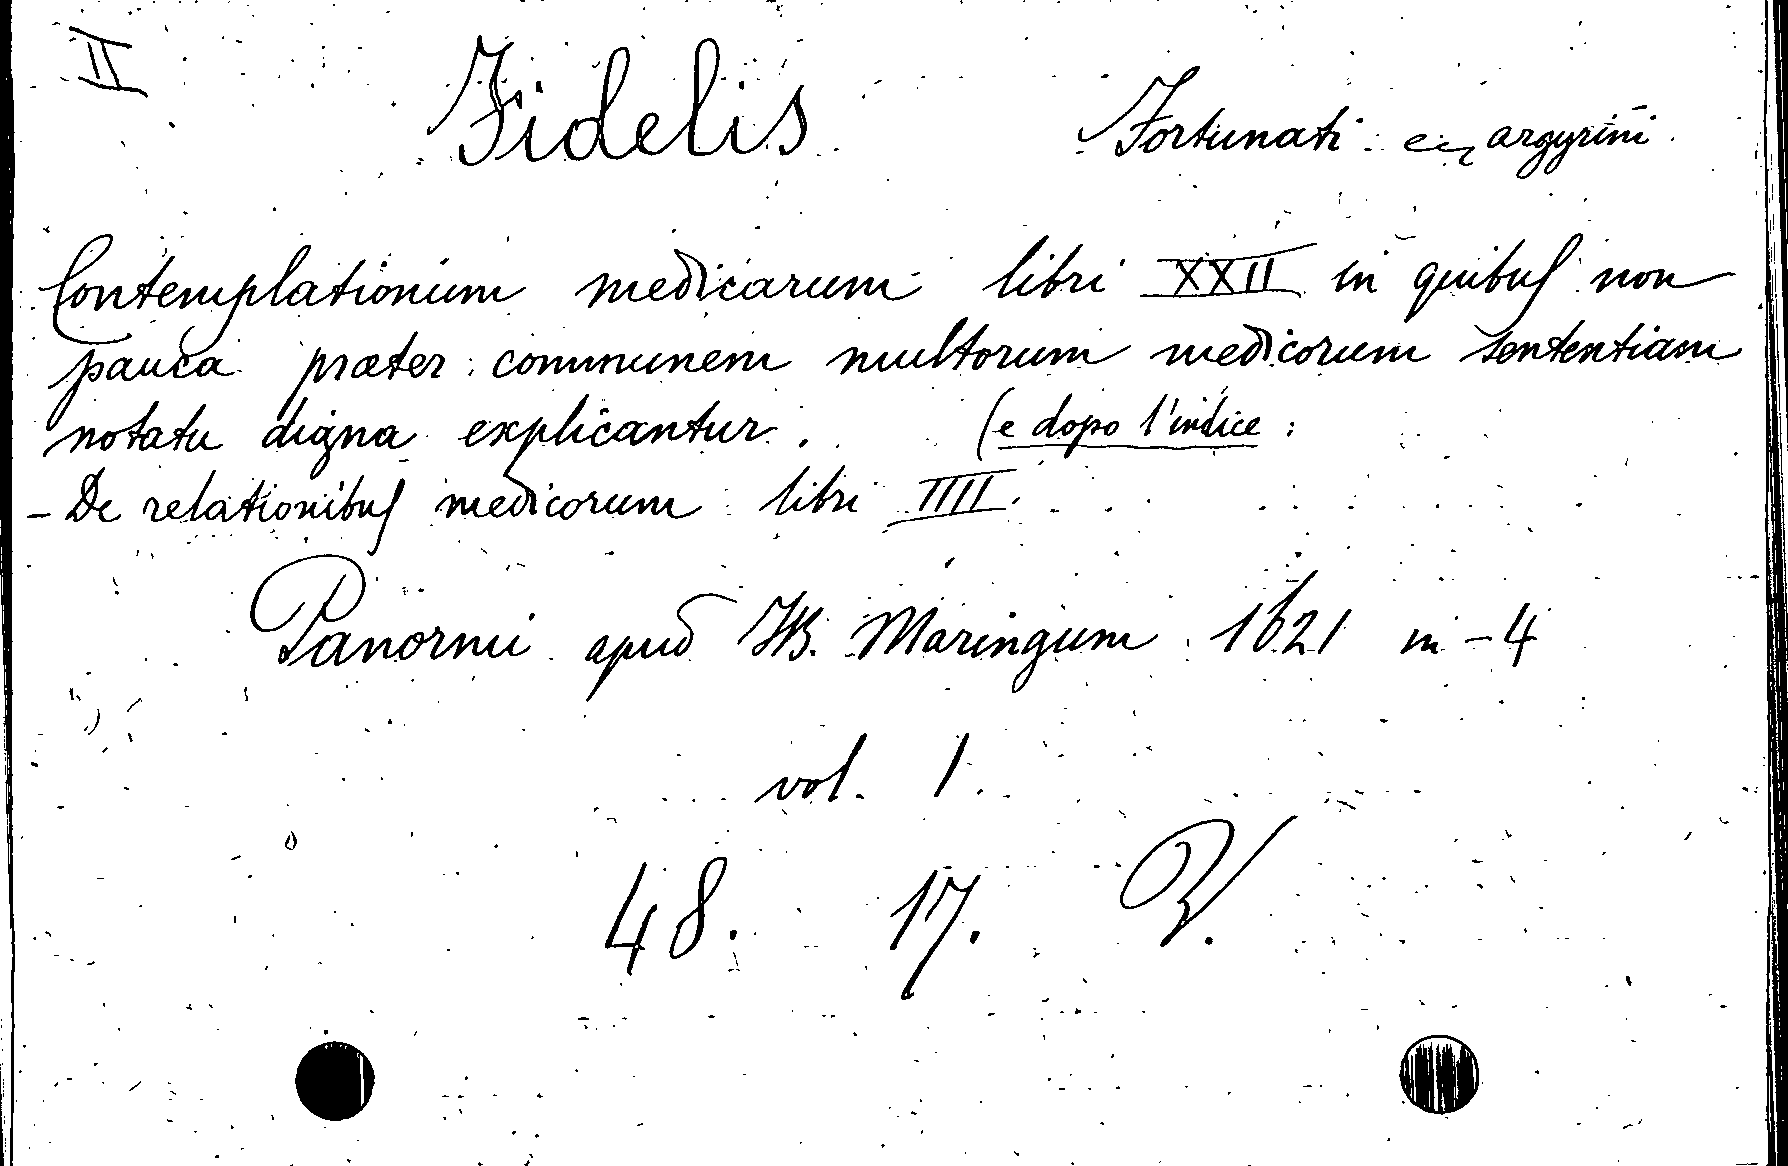 II
Fidelis Fortunati argyrini
Contemplationum medicarum libri XXII in quibus non
pauca præter communem multorum medicorum sententiam
notatu digna explicantur. (e dopo l'indice:
- De relationibus medicorum libri IIII.
Panormi apud JB. Maringum 1621 in-4
vol. 1.
48. 17.